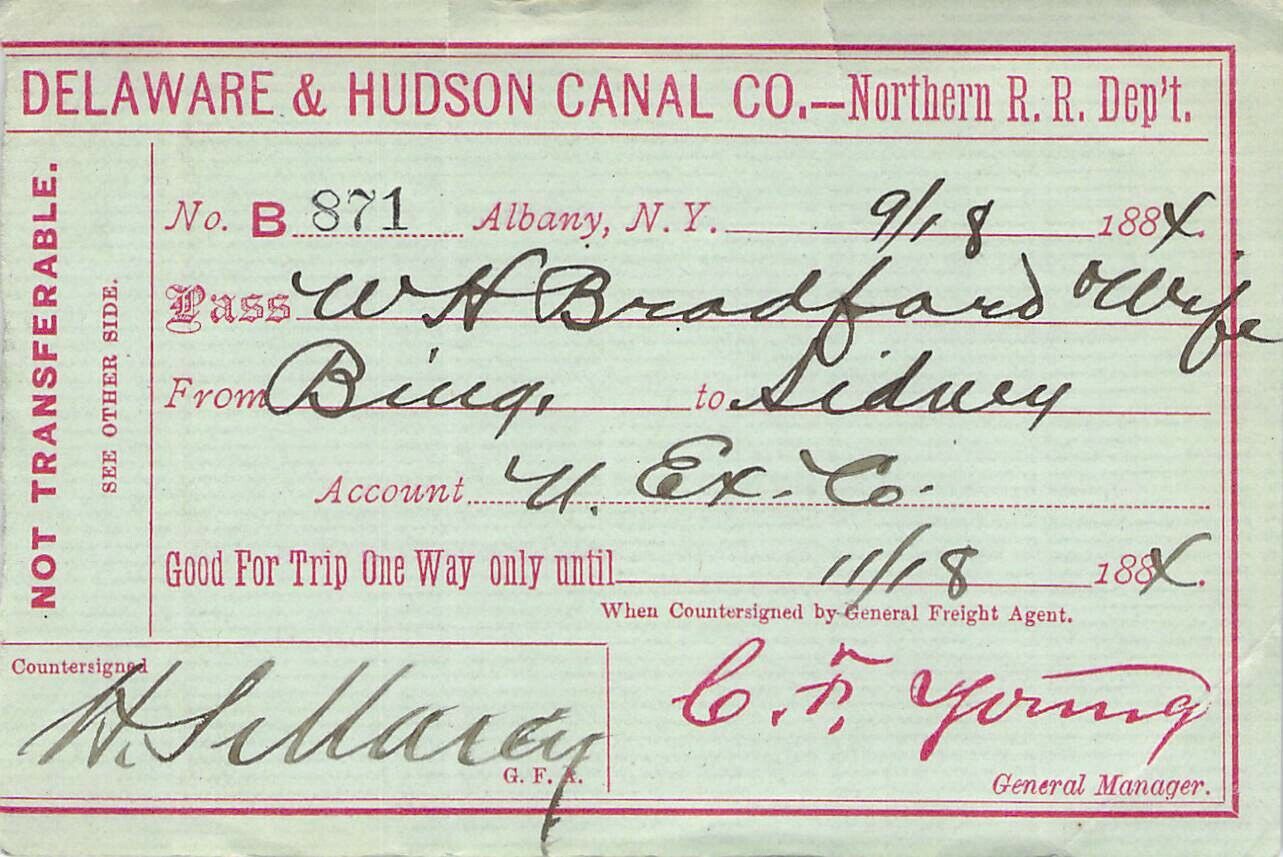 DELAWARE & HUDSON CANAL CO.—Northern R. R. Dep't.
NOT TRANSFERABLE.
SEE OTHER SIDE.
No. B 871 Albany, N. Y. 9/18 1884.
Pass W H Bradford & Wife
From Bing. to Sidney
Account U. Ex. Co.
Good For Trip One Way only until 11/18 1884.
When Countersigned by General Freight Agent.
Countersigned
H. S. Marcy
G. F. A.
C. F. Young
General Manager.